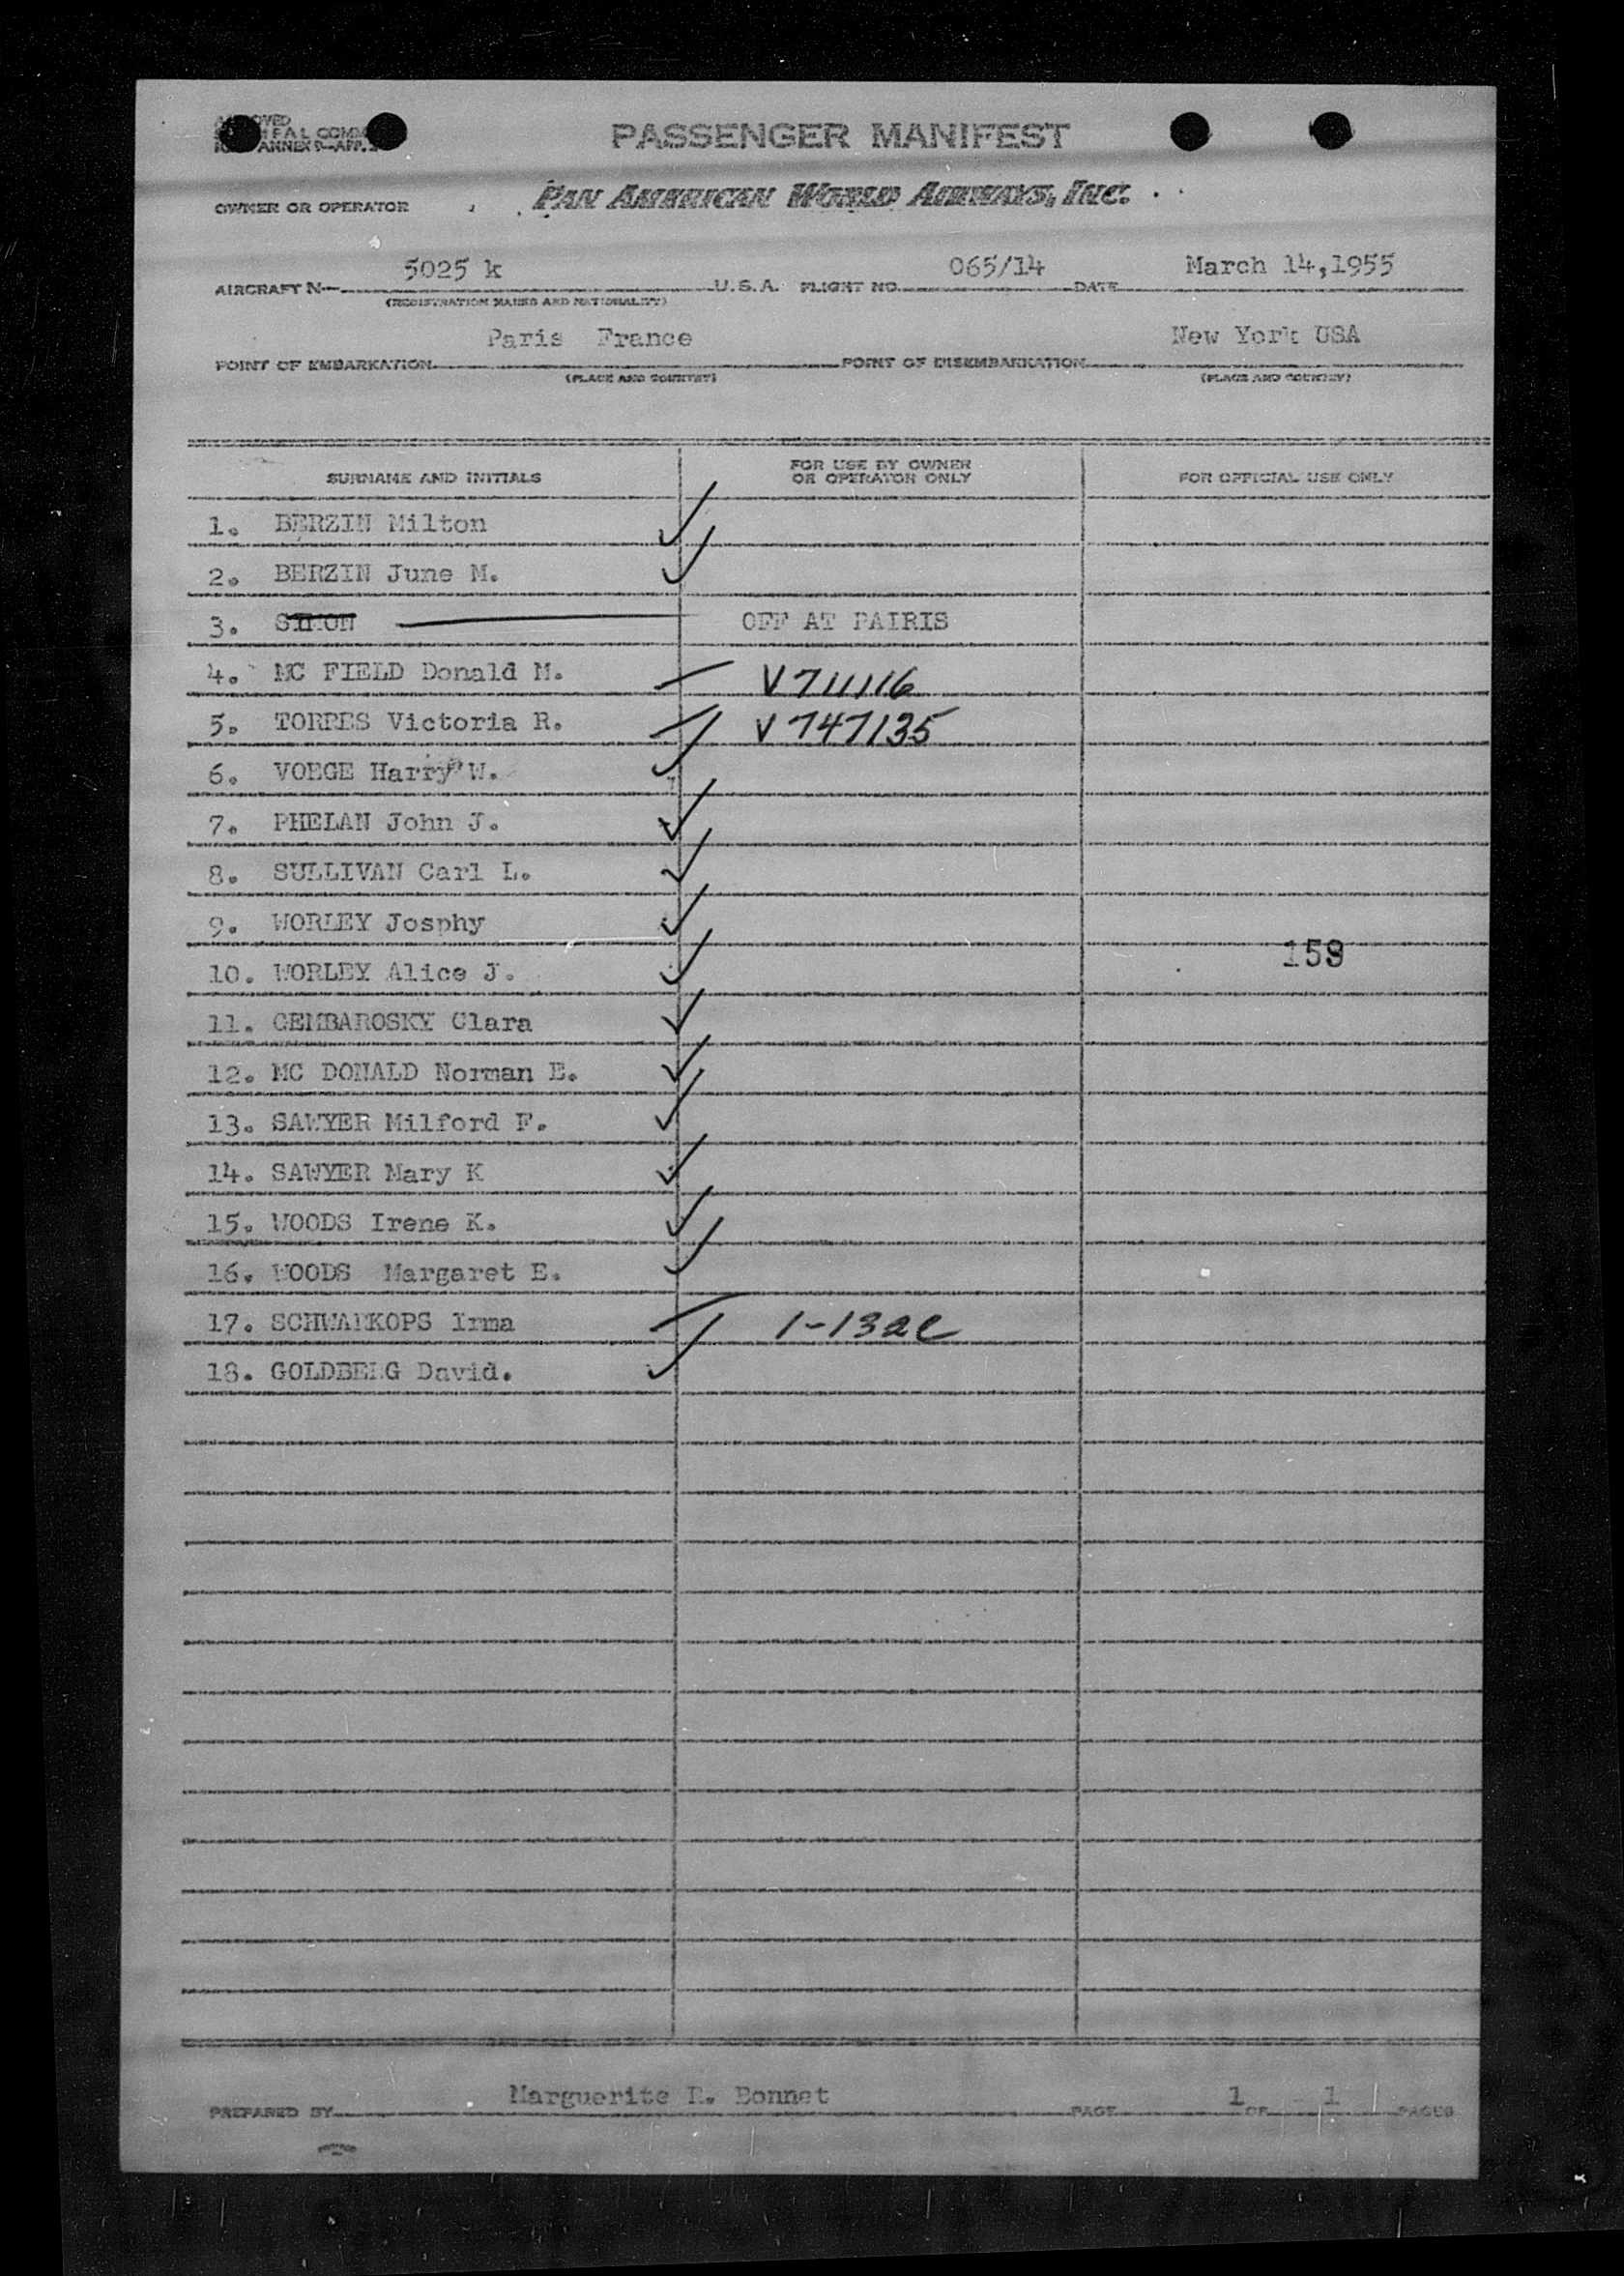 PASSENGER MANIFEST
OWNER OR OPERATOR PAN AMERICAN WORLD AIRWAYS, INC.
AIRCRAFT N— 5025 k U.S.A. FLIGHT NO. 065/14 DATE March 14,1955
(REGISTRATION MARKS AND NATIONALITY)
POINT OF EMBARKATION Paris France POINT OF DISEMBARKATION New York USA
(PLACE AND COUNTRY) (PLACE AND COUNTRY)
SURNAME AND INITIALS FOR USE BY OWNER OR OPERATOR ONLY FOR OFFICIAL USE ONLY
1. BERZIN Milton
2. BERZIN June M.
3. SIMON OFF AT PAIRIS
4. MC FIELD Donald M. V711116
5. TORRES Victoria R. V747135
6. VOEGE Harry W.
7. PHELAN John J.
8. SULLIVAN Carl L.
9. WORLEY Josphy
159
10. WORLEY Alice J.
11. GEMBAROSKY Clara
12. MC DONALD Norman E.
13. SAWYER Milford F.
14. SAWYER Mary K
15. WOODS Irene K.
16. WOODS Margaret E.
17. Irma
18. GOLDBERG David.
PREPARED BY Marguerite Bonnet PAGE 1 OF 1 PAGES